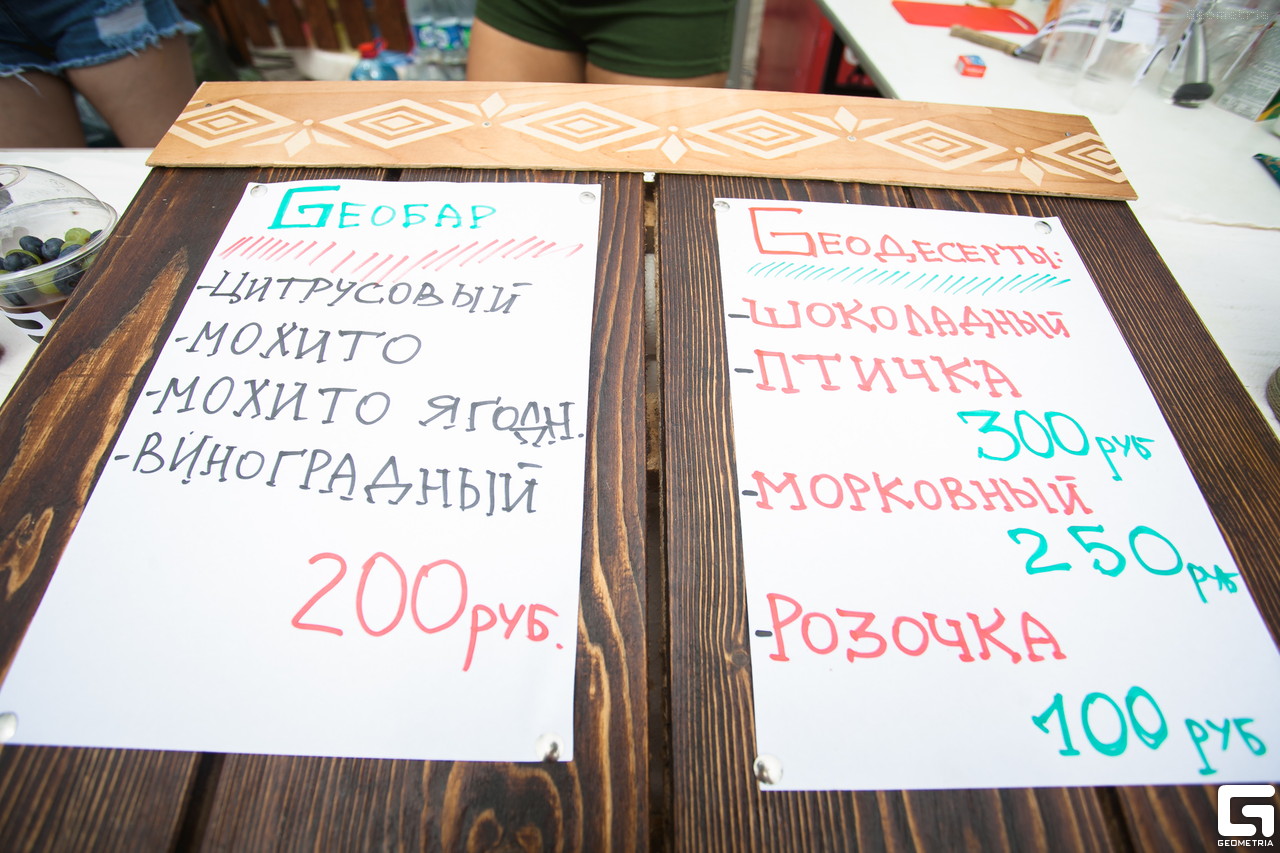 GЕОБАР
-ЦИТРУСОВЫЙ
-МОХИТО
-МОХИТО ЯГОДН.
-ВИНОГРАДНЫЙ
200 руб.
GЕОДЕСЕРТЫ:
-ШОКОЛАДНЫЙ
-ПТИЧКА
300 руб
-МОРКОВНЫЙ
250 руб
-РОЗОЧКА
100 руб
Geometria
GEOMETRIA